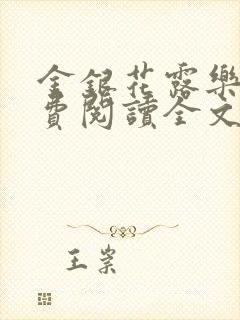 金銀花露樂
費閱讀全文
王崇